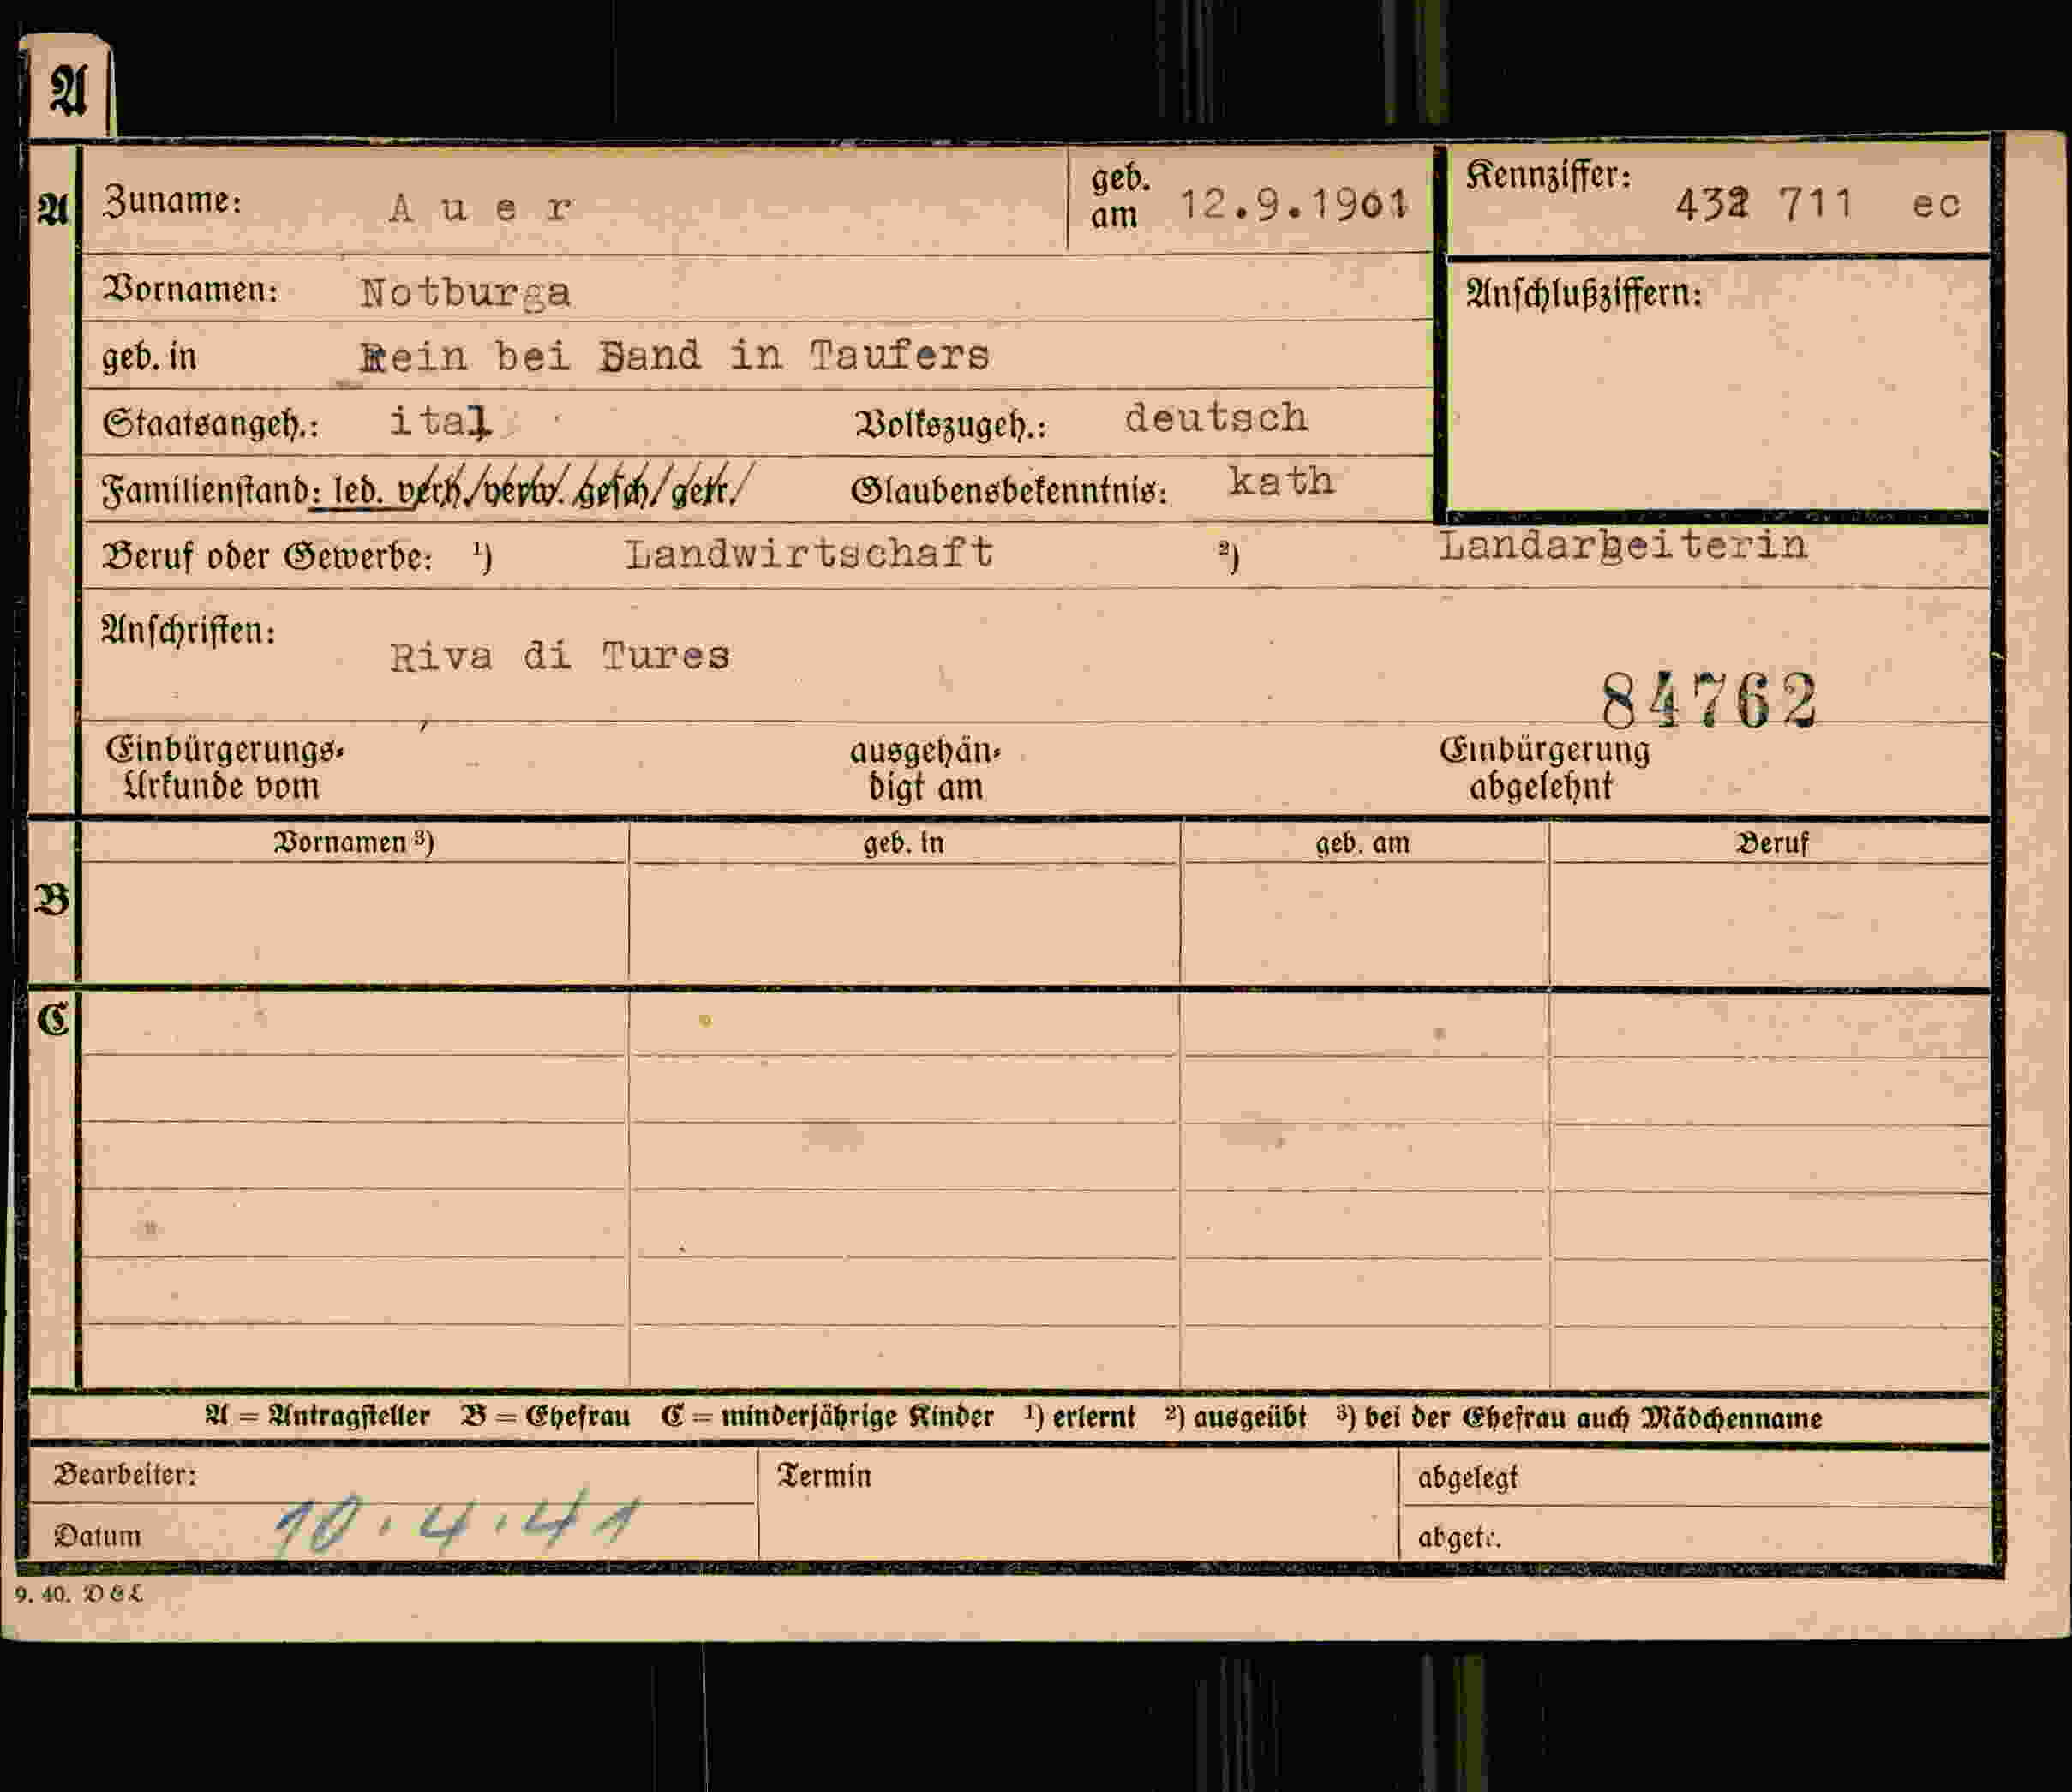 A
A Zuname: Auer geb. am 12.9.1901 Kennziffer: 432 711 ec
Vornamen: Notburga Anschlußziffern:
geb. in Rein bei Sand in Taufers
Staatsangeh.: ital Volkszugeh.: deutsch
Familienstand: led. verh./verw. gesch/getr./ Glaubensbekenntnis: kath
Beruf oder Gewerbe: ¹) Landwirtschaft ²) Landarbeiterin
Anschriften:
Riva di Tures
84762
Einbürgerungs- ausgehän- Einbürgerung
Urkunde vom digt am abgelehnt
Vornamen ³) geb. in geb. am Beruf
B
C
A = Antragsteller B = Ehefrau C = minderjährige Kinder ¹) erlernt ²) ausgeübt ³) bei der Ehefrau auch Mädchenname
Bearbeiter: Termin abgelegt
Datum 10.4.41 abgetr.
9. 40. DGL